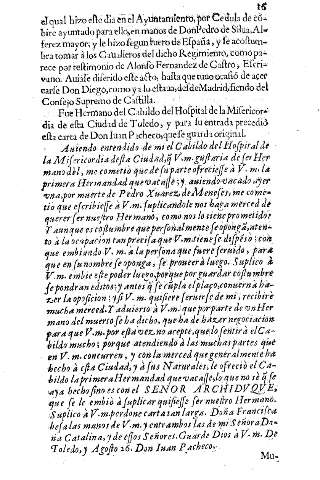 16
el qual hizo este dia en el Ayuntamiento, por Cedula de co-
bire ayuntado para ello, en manos de Don Pedro de Silua, Al-
ferez mayor; y le hizo segun fuero de España, y se acostum-
bra tomar à los Caudieros del dicho Regimiento, como pa-
rece por testimonio de Alonso Fernandez de Castro, Escri-
vano. Auiase diferido este acto, hasta que tuuo ocasiõ de acer
carse Don Diego, como ya lo estaua, desde Madrid, siendo del
Consejo Supremo de Castilla.
Fue Hermano del Cabildo del Hospital de la Misericor-
dia de esta Ciudad de Toledo, y para su entrada precediò
esta carta de Don Juan Pacheco, que se guarda original.
Auiendo entendido de mi el Cabildo del Hospital de
la Misericordia desta Ciudad, q̃ V.m. gustaria de ser Her
mano dèl, me cometiò que de su parte ofreciesse à V.m. la
primera Hermandad que vacasse; y auiendo vacado, ayer
vna, por muerte de Pedro Xuarez de Meneses, me come-
tio que escriuiesse à V.m. suplicandole nos haga merced de
querer ser nuestro Hermano, como nos lo tiene prometido:
Y aunque es costumbre que personalmente se oponga, aten-
to à la ocupacion tan precisa que V.m. tiene se dispẽsò; con
que embiando V.m. à la persona que fuere seruido, para
que en su nombre se oponga, se proueerà luego. Suplico à
V.m. embie este poder luego, porque por guardar costumbre
se pondran editos; y antes q̃ se cũpla el plaço, conuernà ha-
zer la oposicion; y si V.m. quisiere seruirse de mi, recibirè
mucha merced. Y aduierto à V.m. que por parte de vn Her
mano del muerto se ha dicho, que ha de hazer negociacion
para que V.m. por esta vez, no acepte, que lo sentirà el Ca-
bildo mucho; porque atendiendo à las muchas partes que
en V.m. concurren, y con la merced que generalmente ha
hecho à esta Ciudad, y à sus Naturales, le ofreciò el Ca-
bildo la primera Hermandad que vacasse, lo que no sè q̃ se
aya hecho sino es con el SEÑOR ARCHIDVQVE,
que se le embiò à suplicar quisiesse ser nuestro Hermano.
Suplico à V.m. perdone carta tan larga. Doña Francisca
besa las manos de V.m. y entrambos las de mi Señora Do-
ña Catalina, y de essos Señores. Guarde Dios à V.m. De
Toledo, y Agosto 26. Don Iuan Pacheco.
Mu-